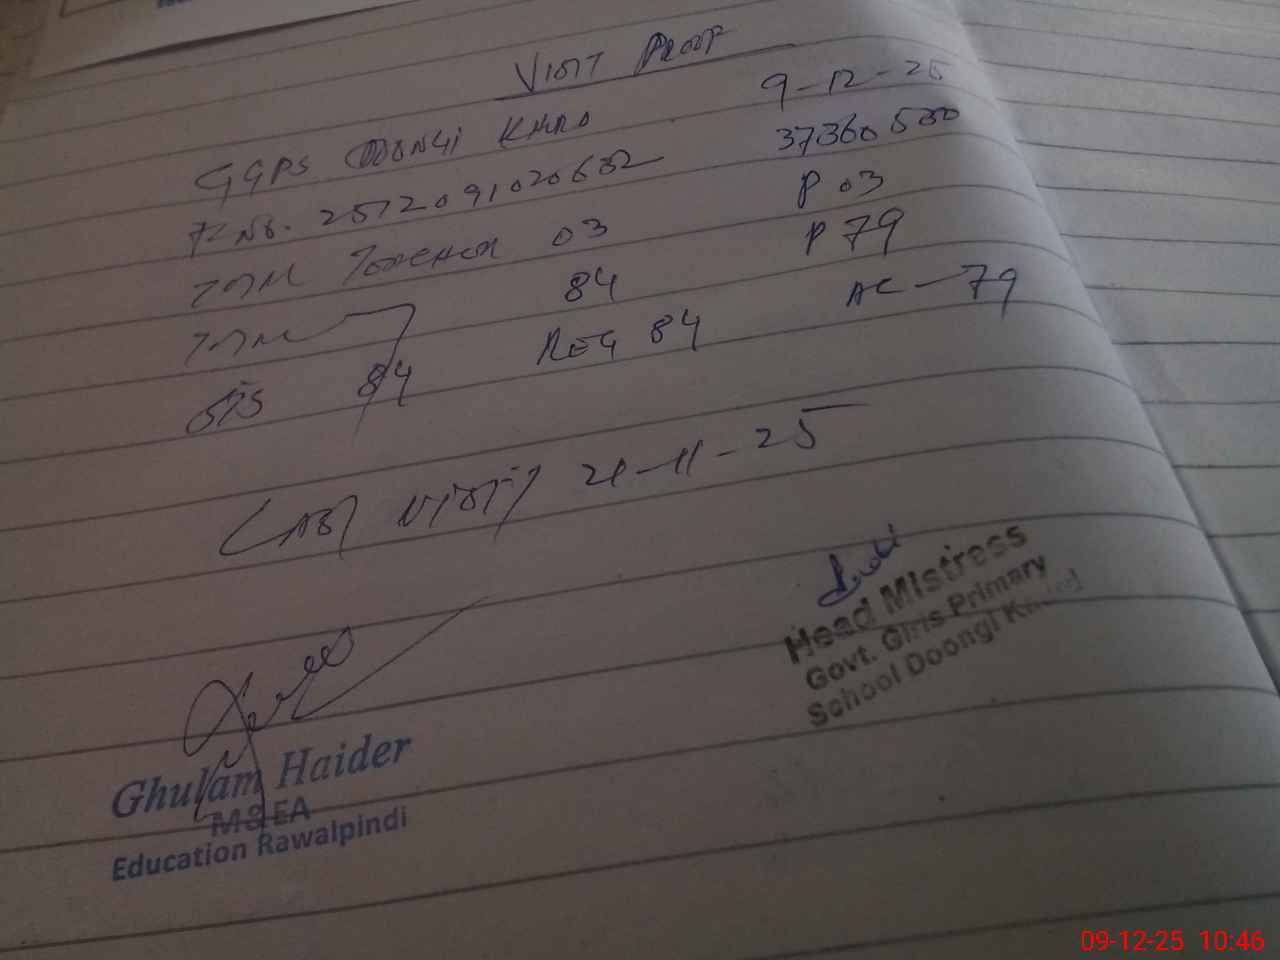 VISIT PROOF
GGPS DOONGI KHRD 9-12-25
F-No. 2512091020632 37360530
TOTAL TEACHER 03 P 03
TOTAL 84 P 79
SIS 84 REG 84 AC-79
LAST VISIT 21-11-25
Head Mistress
Govt. Girls Primary
School Doongi
Ghulam Haider
MEA
Education Rawalpindi
09-12-25 10:46